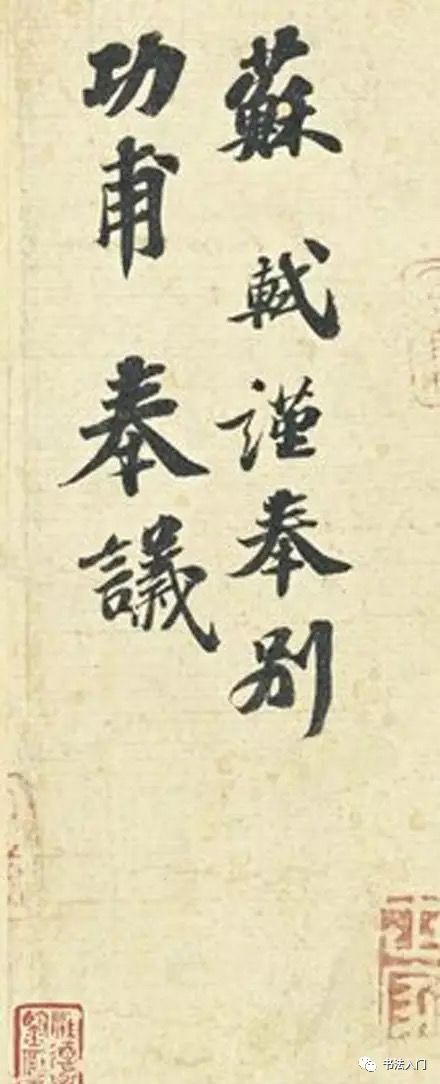 蘇軾謹奉別
功甫奉議
书法入门